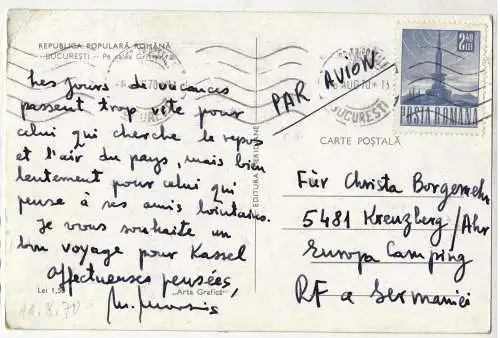 REPUBLICA POPULARĂ ROMÂNĂ
BUCUREȘTI - Pe calea Griviței
Les jours de vacances
passent trop vite pour
celui qui cherche le repos
et l'air du pays, mais bien
lentement pour celui qui
pense à ses amis lointaines.
Je vous souhaite un
bon voyage pour Kassel
affectueuses pensées,
Lei 1,50
"Arta Grafică"
11.8.70
EDITURA MERIDIANE
PAR AVION
AUG 70 - 13
BUCUREȘTI
2,40
LEI
POSTA ROMANA
CARTE POȘTALĂ
Für Christa Borgerwehr
5481 Kreuzberg/Ahr
Europa Camping
RF a Germaniei